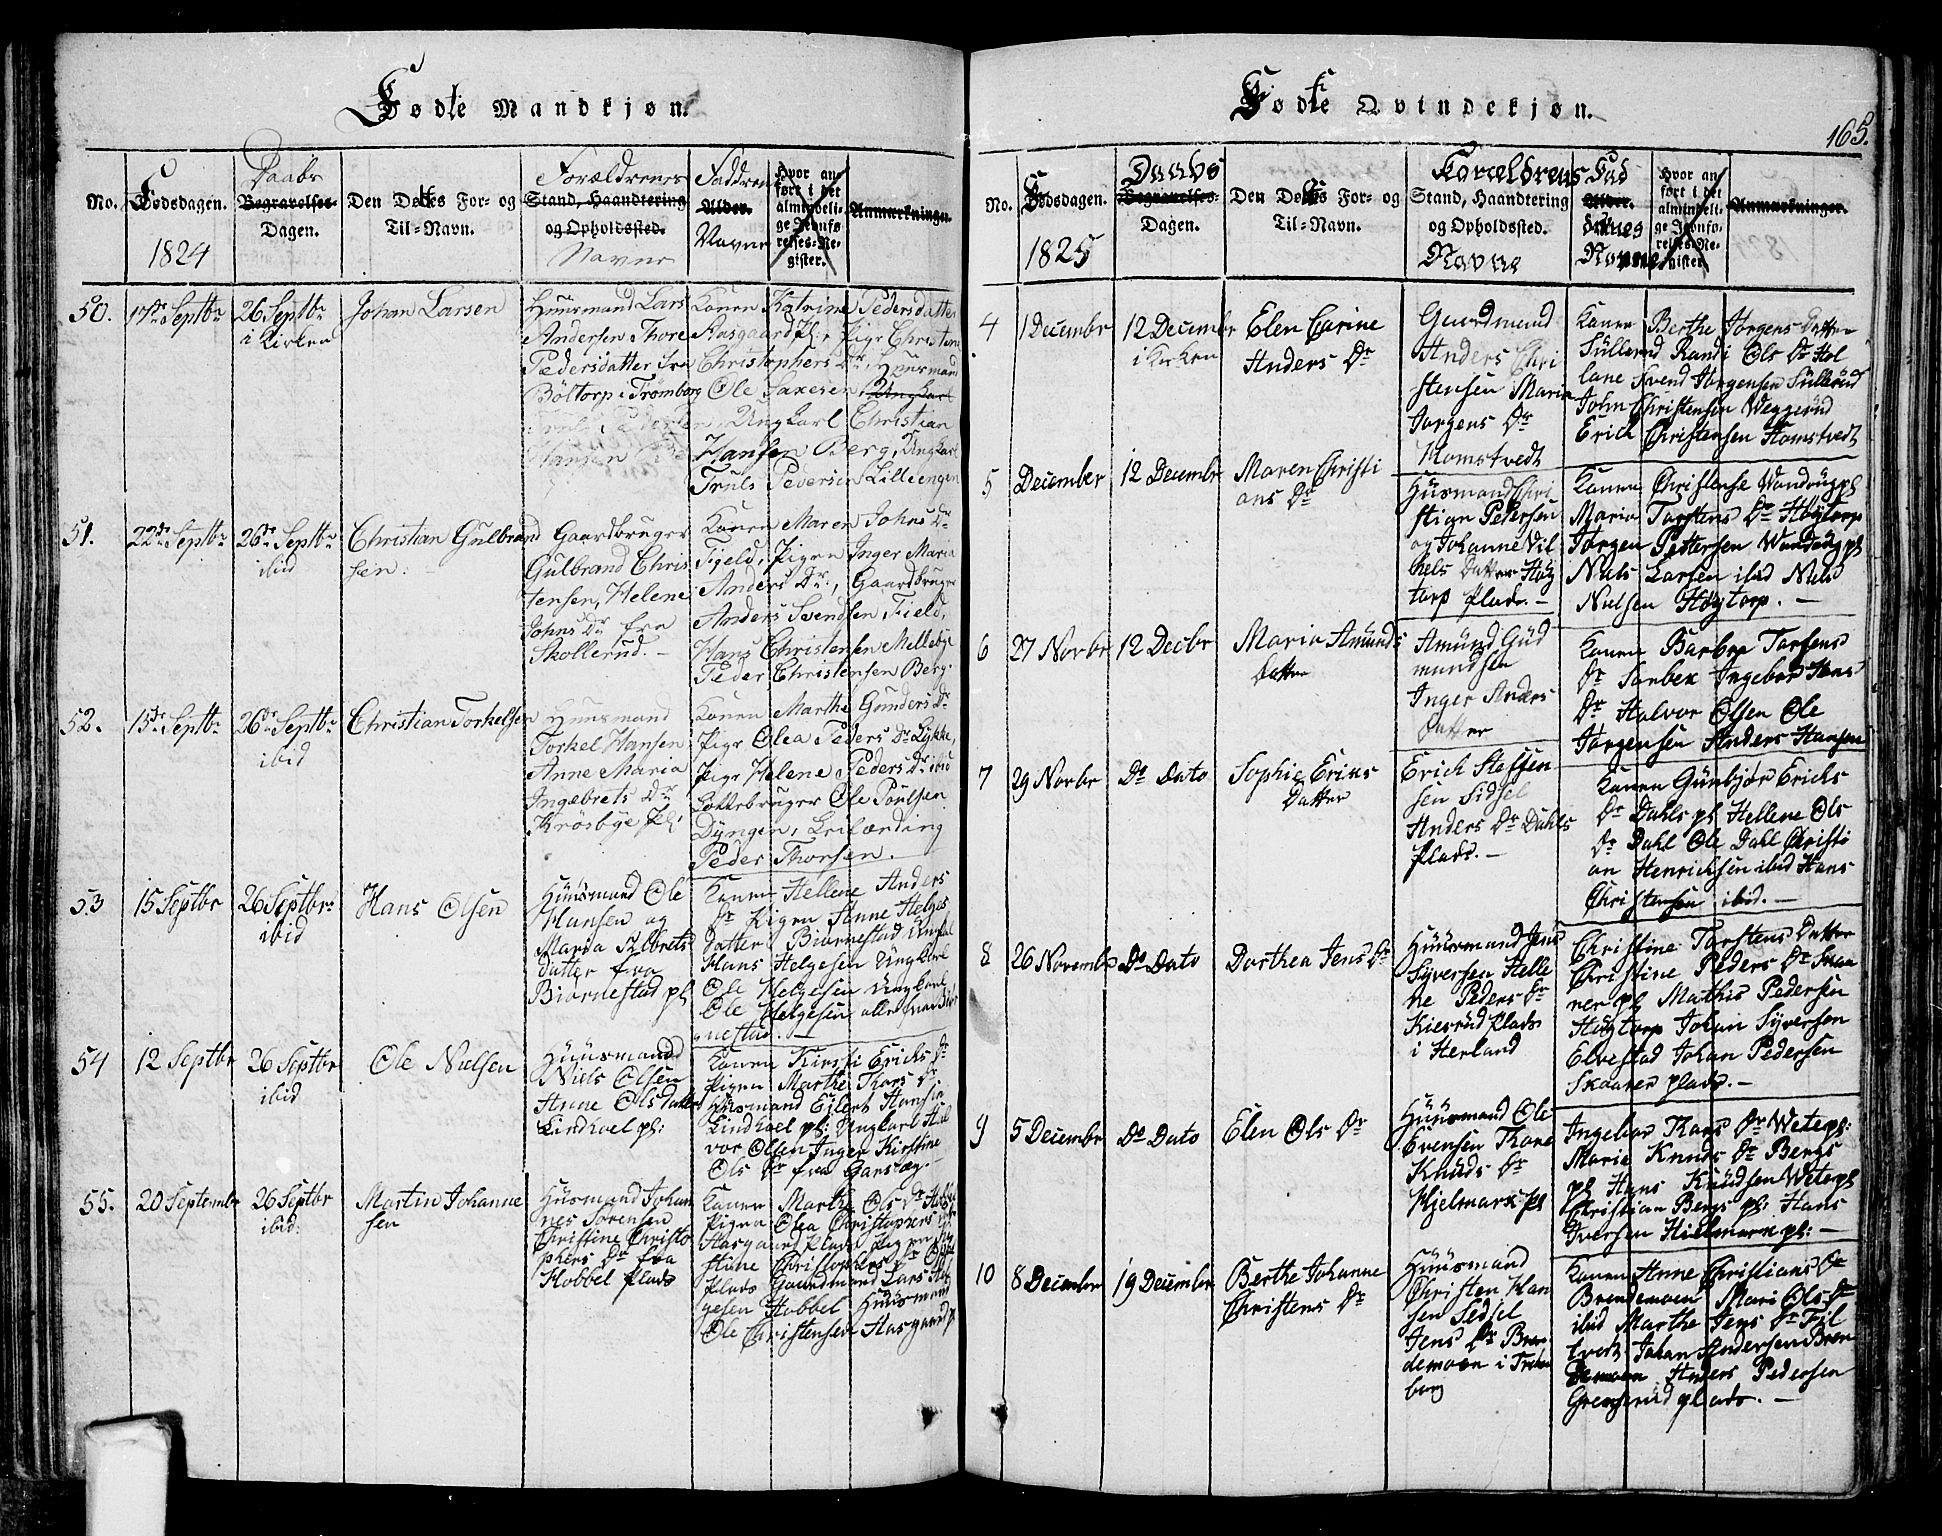 Fødte Mandkjøn.
No.
Fødsdagen.
1824
Daabs
Begravelses-
Dagen.
Den Døbtes For- og
Til-Navn.
Forældrenes
Stand, Haandtering
og Opholdssted.
Navne
Faddrenes
Alder.
Navne
Hvor an-
ført i det
almindeli-
ge Jevnfø-
relses-Re-
gister.
Anmærkninger.
50.
17de Septbr
26 Septbr
i Kirken
Johan Larsen
Huusmand Lars
Andersen Thore
Pedersdatter fra
Böltorp i Trömborg
Konen Katrine Pedersdatter
Aasgaard Pl:, Pige Christine
Christophers Dr, Huusmand
Ole Laxesen, Ungkarl
Ungkarl Christian
Hansen Berg, Ungkarl
Truls Pedersen Lilleengen
51.
22de Septbr
26de Septbr
ibid
Christian Gulbrand
sen:
Gaardbruger
Gulbrand Chris
tensen, Helene
Johns Dr fra
Skollerud. -
Konen Maren Johns Dr
Fjeld, Pigen Inger Maria
Anders Dr, Gaardbruger
Anders Svendsen Field,
Hans Christensen Mellebye
Peder Christensen Berg.
52.
15de Septbr
26de Septbr
ibid
Christian Torkelsen
Huusmand
Torkel Hansen
Anne Maria
Ingebrets Dr
Krosbye Pl:
Konen Marthe Gunders Dr
Pige Olea Peders Dr Lykke,
Pige Helene Peders Dr ibid
Ole Poulsen
Dyngen,
Peder Thorsen.
53
15 Septbr
26 Septbr
ibid
Hans Olsen
Huusmand Ole
Hansen og
Maria Elbrets
datter fra
Biørnestad pl
Konen Hellene Anders
Dr Pigen Anne Helges
datter Biørnestad Ungkal
Hans Helgesen Ungkarl
Ole Helgesen Ungkarl
Ole Helgesen alle fra Biør
nestad. -
54
12 Septbr
26 Septbr
ibid
Ole Nielsen
Huusmand
Niels Olsen
Anne Olsdatter
Lindhoel pl:
Konen Kirsti Erichs Dr
Pigen Marthe Kars Dr
Husmand Eilert Hansen
Lindhoel pl: Ungkarl Hal
vor Olsen Inger Kirstine
Ols Dr fra
55.
20 September
26 Septbr
ibid:
Martin Johanne
sen
Husmand Johan
nes Sörensen
Christine Christo
phers Dr fra
Hobbel Plads
Konen Marthe Ols Dr
Pigen Olea Christophers
Aasgaard Plads Pigen
stine Christophers Dr
Plads Gaardmand Lars Hel
gesen Hobbel Huusmand
Ole Christensen Aasgaard p
Fødte Qvindekjøn.
165.
No.
Fødsdagen.
1825
Daabs
Begravelses-
Dagen.
Den Døbtes For- og
Til-Navn.
Forældrenes
Stand, Haandtering
og Opholdssted.
Navne
Fad
Alder.
dernes
Navne
Hvor an-
ført i det
almindeli-
ge Jevnfø-
relses-Re-
gister.
Anmærkninger.
4
1 Decembr
12 Decembr
i Kirken
Elen Carine
Anders Dr
Guardmand
Anders Chri
stensen Marie
Jorgens Dr
Homstvedt
Konen Berthe Jorgens Datter
Süllerud Randi Ols Dr Hol
lane Svend Jorgensen Süllerüd
John Christensen Weggerüd
Erich Christensen Homstvedt
5
December
12 Decembr
Maren Christi
ans Dr
Husmand Chri
stian Petersen
og Johanne Vil
hels Datter Høy
torp Plads. -
Konen Christense Wandug pl
Maria Torstens Dr Høytorp
Jorgen Pettersen Wandug pl
Niels Larsen ibid Niels
Nielsen Høytorp. -
6
27 Novbr
12 Decbr
Maria Amunds
Datter
Amünd Güd
mundsen
Inger Anders
Datter
Konen Barbra Torstens
Dr Sorbek Ingebor Hans
Dr Halvor Olsen Ole
Jorgensen Anders Hansen
7
29 Novbr
Do Dato
Sophie Erichs
Datter
Erich Steffen
sen Sidsel
Anders Dr Dahls
Plads. -
Konen Günbjør Erichs
Dr Dahls pl Hellene Ols
Dr Dahl Ole Dahl Christi
an Henrichsen ibid Hans
Christensen ibid. -
8
26 Novembr
Do Dato
Dorthea Jens Dr
Huusmand Jens
Syversen Helle
ne Peders Dr
Kiesrüd Plads
i Herland
Christine Torstens Datter
Christine Peders Dr Skaa
rer pl Mathis Pedersen
Høytorp Johan Syversen
Elvestad Johan Pedersen
Skaarer plads. -
9
5 Decembr
Do Dato
Elen Ols Dr
Huusmand Ole
Evensen Kare
Knuds Dr
Hjelmark pl
Ingebor Kars Dr Wetepl:
Marie Knuds Dr Bergs
pl Hans Knudsen Wetepl
Christian Bergs pl: Hans
Iversen Hielmark pl: -
10
8 Decembr
19 Decembr
Berthe Johanne
Christens Dr
Huusmand
Christen Han
sen Sedsel
Jens Dr Bren
demoen i Tröm
borg
Konen Anne Christians Dr
Brendemoen Mari Ols Dr
ibid Marthe Jens Dr Fil
tvedt Johan Andersen Bren
demoen Anders Pedersen
Grenserüd plads. -